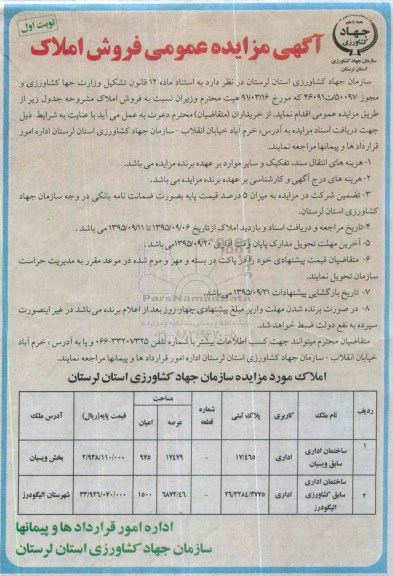 نوبت اول
همه با هم
جهاد
کشاورزی
سازمان جهاد کشاورزی
استان لرستان
آگهی مزایده عمومی فروش املاک
سازمان جهاد کشاورزی استان لرستان در نظر دارد به استناد ماده ۱۲ قانون تشکیل وزارت جهاد کشاورزی و
مجوز ۵۰۰۹۷/ت۴۶۰۹۱ که مورخ ۹۷۰۳/۱۶ هیت محترم وزیران نسبت به فروش املاک مشروحه جدول زیر از
طریق مزایده عمومی اقدام نماید. از خریداران (متقاضیان) محترم دعوت به عمل می آید با عنایت به شرایط ذیل
جهت دریافت اسناد مزایده به آدرس: خرم آباد خیابان انقلاب - سازمان جهاد کشاورزی استان لرستان اداره امور
قرارداد ها و پیمانها مراجعه نمایند.
۱- هزینه های انتقال سند، تفکیک و سایر موارد بر عهده برنده مزایده می باشد.
۲- هزینه های درج آگهی و کارشناسی بر عهده برنده مزایده می باشد.
۳- تضمین شرکت در مزایده به میزان ۵ درصد قیمت پایه بصورت ضمانت نامه بانکی در وجه سازمان جهاد
کشاورزی استان لرستان.
۴-تاریخ مراجعه و دریافت اسناد و بازدید املاک از تاریخ ۱۳۹۵/۰۹/۰۶ تا ۱۳۹۵/۰۹/۱۱ می باشد .
۵- آخرین مهلت تحویل مدارک پایان وقت اداری ۱۳۹۵/۰۹/۲۰ می باشد.
۶- متقاضیان قیمت پیشنهادی خود را در پاکت در بسته و مهر و موم شده در موعد مقرر به مدیریت حراست
سازمان تحویل نمایند.
۷- تاریخ بازگشایی پیشنهادات ۱۳۹۵/۰۹/۲۱ می باشد.
۸- در صورت برنده شدن مهلت واریز مبلغ پیشنهادی چهار روز بعد از اعلام برنده می باشد در غیر اینصورت
سپرده به نفع دولت ضبط خواهد شد.
متقاضیان محترم میتوانند جهت کسب اطلاعات بیشتر با شماره تلفن ۳۳۲۰۷۳۲۵-۰۶۶ و یا به آدرس : خرم آباد
خیابان انقلاب - سازمان جهاد کشاورزی استان لرستان اداره امور قرارداد ها و پیمانها مراجعه نمایند.
ParsNamadData
املاک مورد مزایده سازمان جهاد کشاورزی استان لرستان
ردیف نام ملک کاربری پلاک ثبتی شماره قطعه مساحت عرصه اعیان قیمت پایه(ریال) آدرس ملک
۱ ساختمان اداری سابق ویسیان اداری ۱۷/۴۶۵ - ۱۷۴۷۹ ۹۷۵ ۲/۹۳۸/۱۱۰/۰۰۰ بخش ویسیان
۲ ساختمان اداری سابق کشاورزی الیگودرز اداری ۲۶/۳۲۸۴/۳۷۷۵ - ۶۸۷۲/۴۶ ۱۵۰۰ ۳۳/۹۲۶/۰۷۰/۰۰۰ شهرستان الیگودرز
اداره امور قرارداد ها و پیمانها
سازمان جهاد کشاورزی استان لرستان